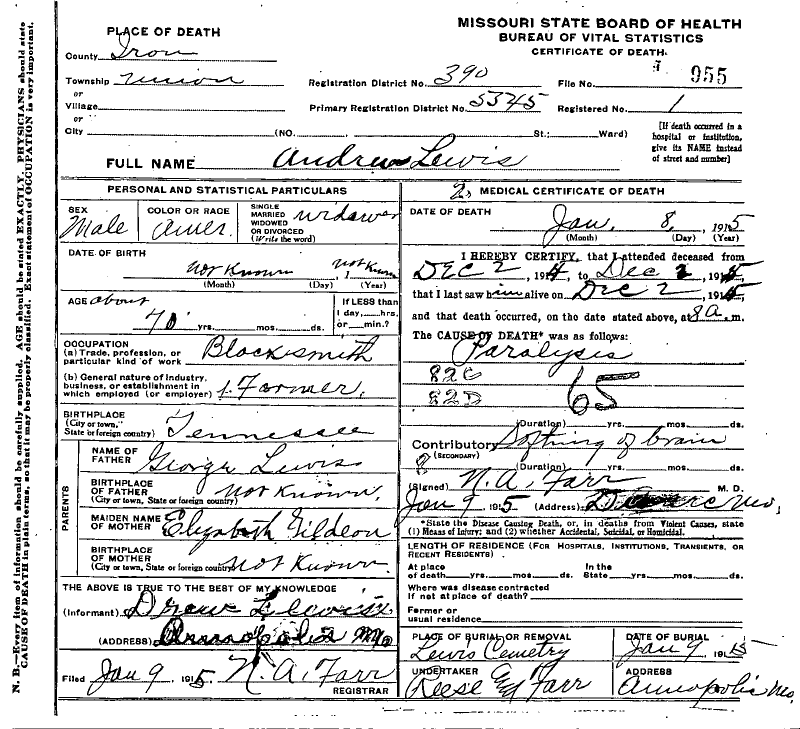 MISSOURI STATE BOARD OF HEALTH
BUREAU OF VITAL STATISTICS
CERTIFICATE OF DEATH.
955
PLACE OF DEATH
County Iron
Township Union
or
Village
or
City (NO. St.; Ward)
Registration District No. 390 File No.
Primary Registration District No. 5345 Registered No. 1
[If death occurred in a
hospital or institution,
give its NAME instead
of street and number]
FULL NAME Andrew Lewis
PERSONAL AND STATISTICAL PARTICULARS
SEX Male
COLOR OR RACE Amer.
SINGLE
MARRIED
WIDOWED
OR DIVORCED
(Write the word)
widower
DATE OF BIRTH
not Known not Known
(Month) (Day) (Year)
AGE about
70 yrs. mos. ds.
If LESS than
1 day, hrs.
or min.?
OCCUPATION
(a) Trade, profession, or
particular kind of work Blacksmith
(b) General nature of industry,
business, or establishment in
which employed (or employer) Farmer.
BIRTHPLACE
(City or town,
State or foreign country) Tennessee
PARENTS
NAME OF
FATHER George Lewis
BIRTHPLACE
OF FATHER
(City or town, State or foreign country) not Known.
MAIDEN NAME
OF MOTHER Elizabeth Gildeon
BIRTHPLACE
OF MOTHER
(City or town, State or foreign country) not Known.
THE ABOVE IS TRUE TO THE BEST OF MY KNOWLEDGE
(Informant) Drew Lewis
(ADDRESS) Annopolis Mo
Filed Jan 9 1915 N. A. Farr
REGISTRAR
2, MEDICAL CERTIFICATE OF DEATH
DATE OF DEATH
Jan. 8, 1915
(Month) (Day) (Year)
I HEREBY CERTIFY, that I attended deceased from
Dec 2, 1914, to Dec 2, 1914
that I last saw him alive on Dec 2, 1914
and that death occurred, on the date stated above, at 8 a. m.
The CAUSE OF DEATH* was as follows:
Paralysis
82C
82D 65
(Duration) yrs. mos. ds.
Contributory Sofning of brain
(SECONDARY)
(Duration) yrs. mos. ds.
(Signed) N. A. Farr M. D.
Jan 9 1915 (Address) Mo,
*State the Disease Causing Death, or, in deaths from Violent Causes, state
(1) Means of Injury; and (2) whether Accidental, Suicidal, or Homicidal.
LENGTH OF RESIDENCE (FOR HOSPITALS, INSTITUTIONS, TRANSIENTS, OR
RECENT RESIDENTS)
At place
of death yrs. mos. ds.
In the
State yrs. mos. ds.
Where was disease contracted
if not at place of death?
Former or
usual residence
PLACE OF BURIAL OR REMOVAL
Lewis Cemetry
DATE OF BURIAL
Jan 9 1915
UNDERTAKER
Reese Ed Farr
ADDRESS
Annopolis Mo.
N. B.—Every item of information should be carefully supplied. AGE should be stated EXACTLY. PHYSICIANS should state
CAUSE OF DEATH in plain terms, so that it may be properly classified. Exact statement of OCCUPATION is very important.